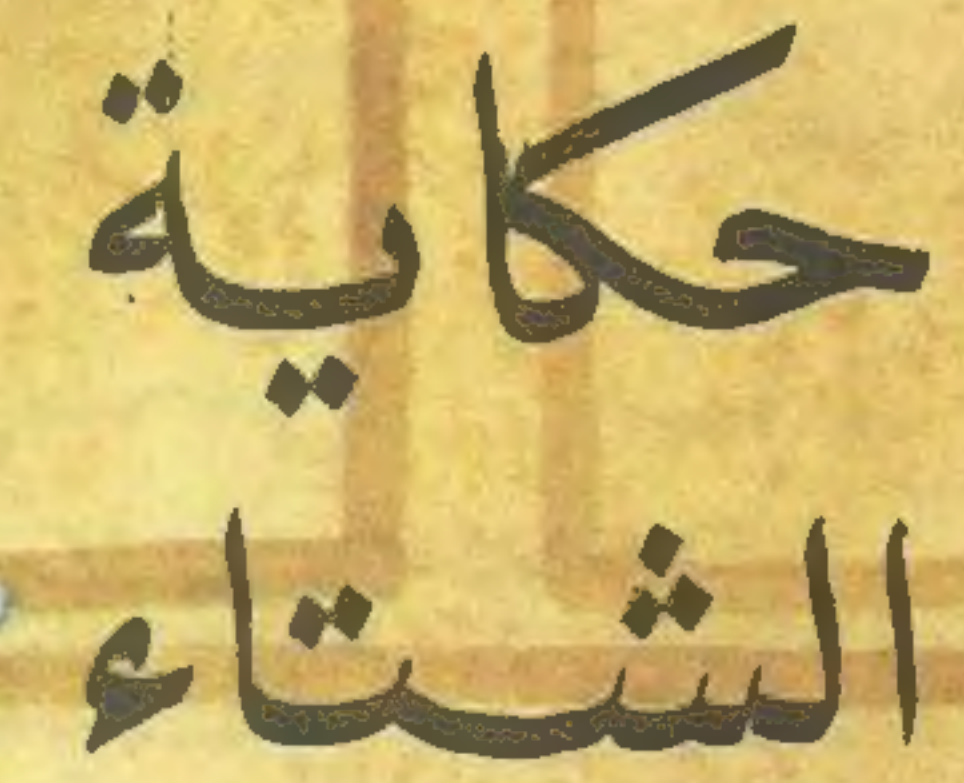 حكاية
الشتاء